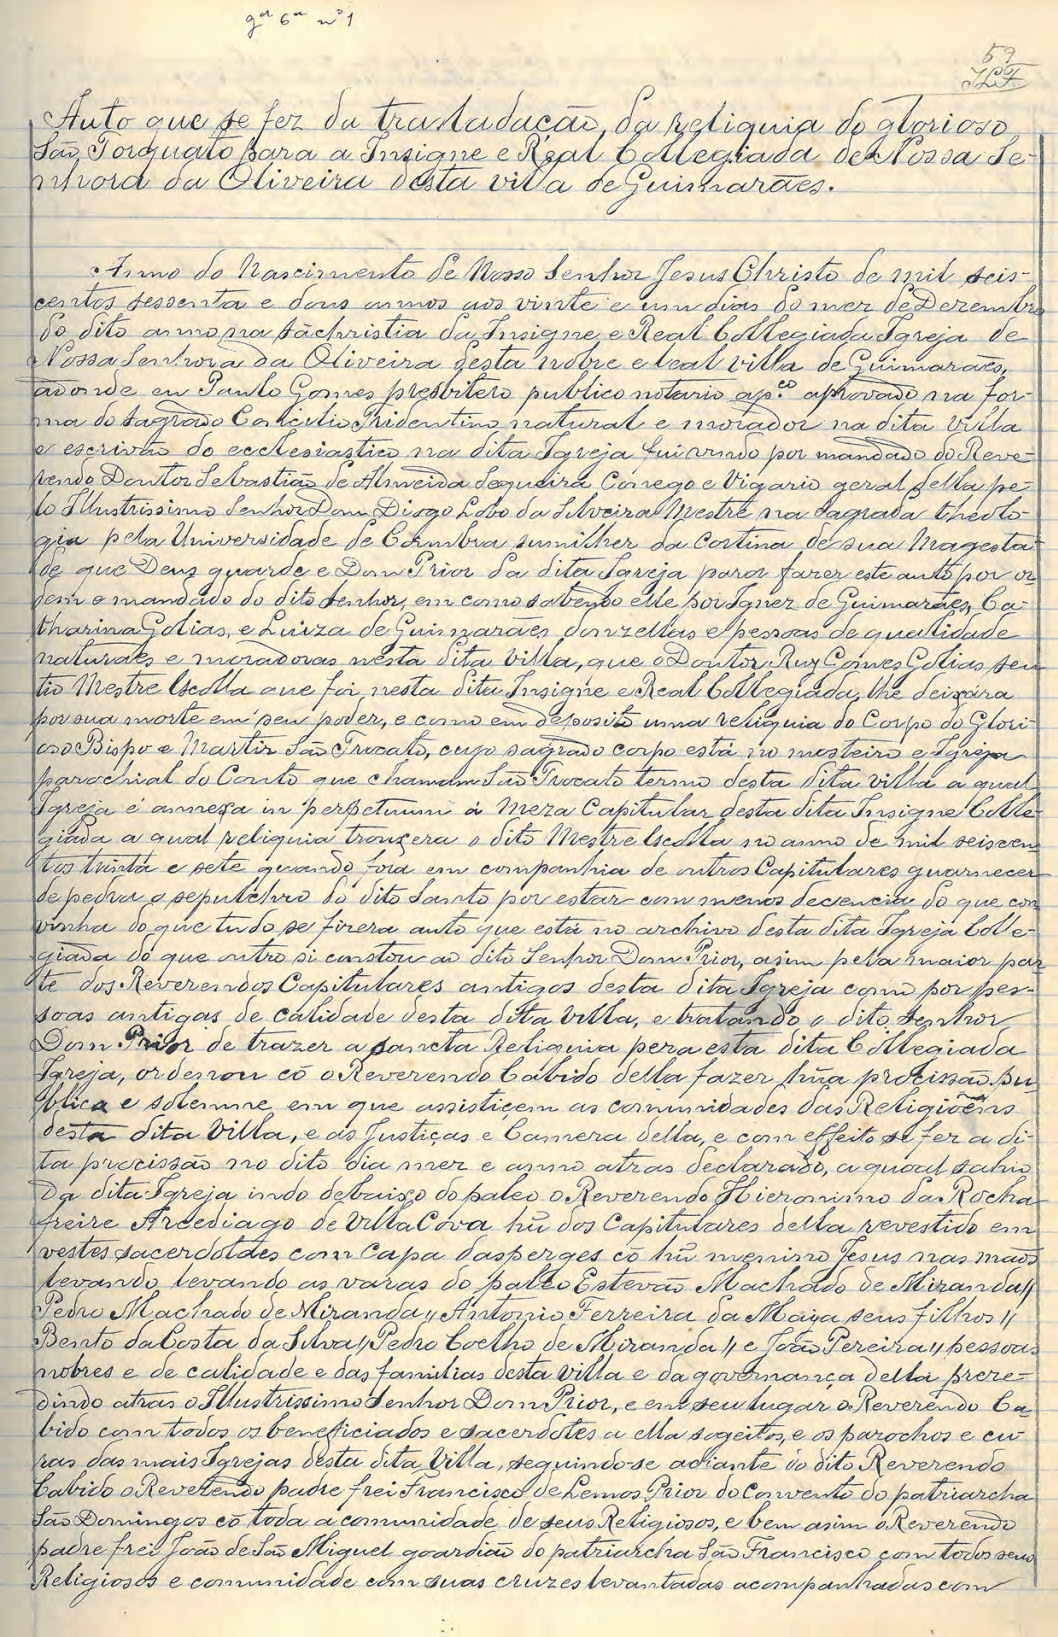 gª 6ª nº 1
59
Auto que se fez da trasladação da Reliquia do glorioso
São Torquato para a Insigne e Real Collegiada de Nossa Se-
nhora da Oliveira desta villa de Guimarães.
Anno do Nascimento de Nosso Senhor Jesus Christo de mil seis-
centos sessenta e dous annos aos vinte e um dias do mez de Dezembro
do dito anno na sãchristia da Insigne e Real Collegiada Igreja de
Nossa Senhora da Oliveira desta nobre e leal villa de Guimarães,
adonde eu Paulo Gomes presbitero publico notario ap.co aprovado na for-
ma do sagrado Concilio Tridentino natural e morador na dita villa
e escrivão do ecclesiastico na dita Igreja fui vindo por mandado do Reve-
rendo Doutor Sebastião de Almeida Sequeira Cónego e Vigario geral della pe-
lo Illustrissimo Senhor Dom Diogo Lobo da Silveira Mestre na sagrada theolo-
gia pela Universidade de Coimbra sumilher da Cortina de sua Magesta-
de que Deus guarde e Dom Prior da dita Igreja para fazer este auto por or-
dem e mandado do dito Senhor, em como sabendo elle por Ignez de Guimarães, Ca-
tharina Golias, e Luiza de Guimarães donzellas e pessoas de qualidade
naturaes e moradoras nesta dita villa, que o Doutor Ruy Gomes Golias seu
tio Mestre Escolla que foi nesta dita Insigne e Real Collegiada, lhe deixára
por sua morte em seu poder, e como em deposito uma reliquia do Corpo do Glori-
oso Bispo e Martir São Trocato, cujo sagrado corpo está no mosteiro e Igreja
parochial do Couto que chamam São Trocato termo desta dita villa a qual
Igreja é annexa in perpetuum á Meza Capitular desta dita Insigne Colle-
giada a qual reliquia trouxera o dito Mestre Escolla no anno de mil seiscen-
tos trinta e sete quando fora em companhia de outros Capitulares guarnecer
de pedra o sepulchro do dito Santo por estar com menos decencia do que con-
vinha do que tudo se fizera auto que está no archivo desta dita Igreja Colle-
giada do que outro si constou ao dito Senhor Dom Prior, asim pela maior par-
te dos Reverendos Capitulares antigos desta dita Igreja como por pes-
soas antigas de calidade desta dita villa, e tratando o dito Senhor
Dom Prior de trazer a sancta Reliquia pera esta dita Collegiada
Igreja, ordenou cõ o Reverendo Cabido della fazer hũa procissão pu-
blica e solemne em que assistiçem as comunidades das Religiõens
desta dita villa, e as Justiças e Camera della, e com effeito se fez a di-
ta procissão no dito dia mez e anno atras declarado, a quoal sahio
da dita Igreja indo debaixo do paleo o Reverendo Hieronimo da Rocha
freire Arcediago de Villa Cova hũ dos Capitulares della revestido em
vestes sacerdotaes com Capa dasperges cõ hũ menino Jesus nas mãos
levando levando as varas do paleo Estevão Machado de Miranda //
Pedro Machado de Miranda // Antonio Ferreira da Maya seus filhos //
Bento da Costa da Silva // Pedro Coelho de Miranda // e João Pereira // pessoas
nobres e de calidade e das familias desta villa e da governança della prece-
dindo atras o Illustrissimo Senhor Dom Prior, e em seu lugar o Reverendo Ca-
bido com todos os beneficiados e sacerdotes a ella sogeitos, e os parochos e cu-
ras das mais Igrejas desta dita villa, seguindo-se adiante do dito Reverendo
Cabido o Reverendo padre frei Francisco de Lemos Prior do Convento do patriarcha
São Domingos cõ toda a comunidade de seus Religiosos, e bem asim o Reverendo
padre frei João de São Miguel goardião do patriarcha São Francisco com todos seus
Religiosos e comunidade com suas cruzes levantadas acompanhadas com